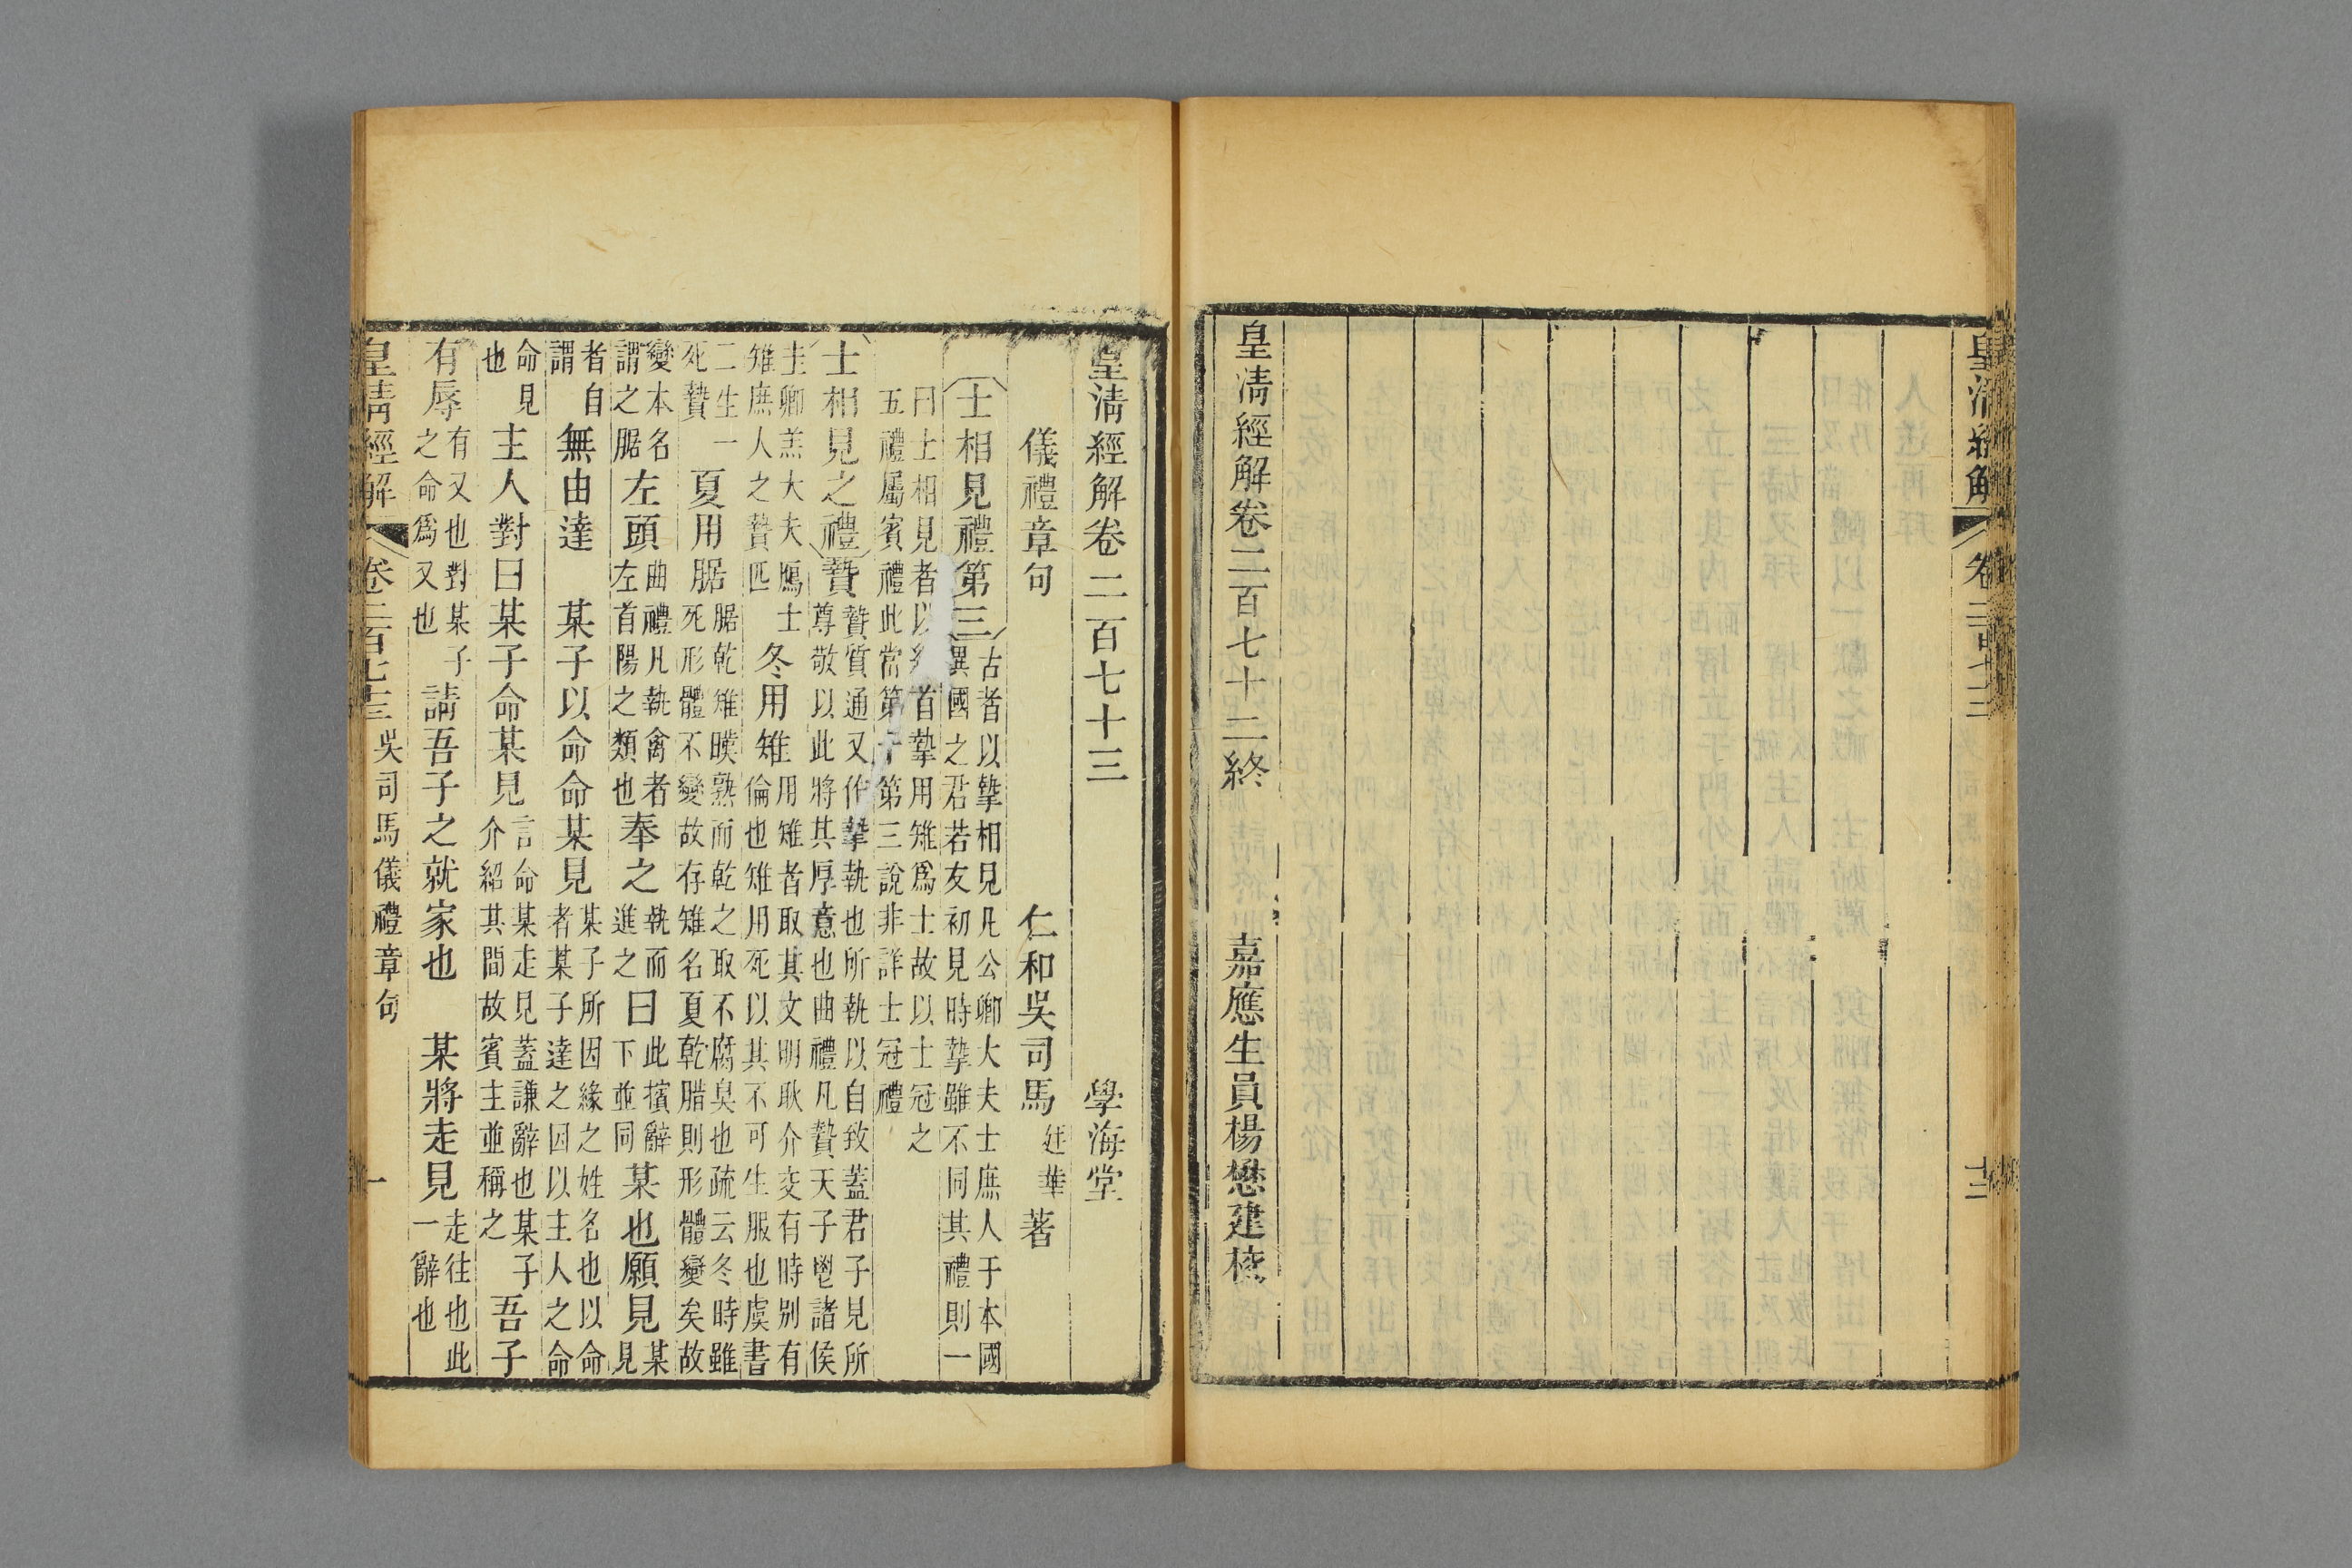 皇清經解
卷二百七十二
十二
皇清經解卷二百七十二終
嘉應生員楊懋建校
皇清經解卷二百七十三
學海堂
儀禮章句
仁和吳司馬廷華著
士相見禮第三
古者以摯相見凡公卿大夫士庶人于本國
異國之君若友初見時摯雖不同其禮則一
曰士相見者以
首摯用雉爲士故以士冠之
五禮屬賓禮此當第
第三說非詳士冠禮
士相見之禮贄
贄質通又作摯執也所執以自致蓋君子見所
尊敬以此將其厚意也曲禮凡贄天子鬯諸侯
圭卿羔大夫鴈士
雉庶人之贄匹
冬用雉
用雉者取其文明耿介交有時别有
倫也雉用死以其不可生服也虞書
二生一
死贄
夏用腒
腒乾雉暵熟而乾之取不腐臭也疏云冬時雖
死形體不變故存雉名夏乾腊則形體變矣故
變本名
謂之腒
左頭
曲禮凡執禽者
左首陽之類也
奉之
執而
進之
曰
此擯辭
下並同
某也願見
某
見
者自
謂
無由達
某子以命命某見
某子所因緣之姓名也以命
者某子達之因以主人之命
命見
也
主人對曰某子命某見
言命某走見蓋謙辭也某子
介紹其間故賓主並稱之
吾子
有辱
有又也對某子
之命爲又也
請吾子之就家也
某將走見
走往也此
一辭也
皇清經解
卷二百七十三
吳司馬儀禮章句
一